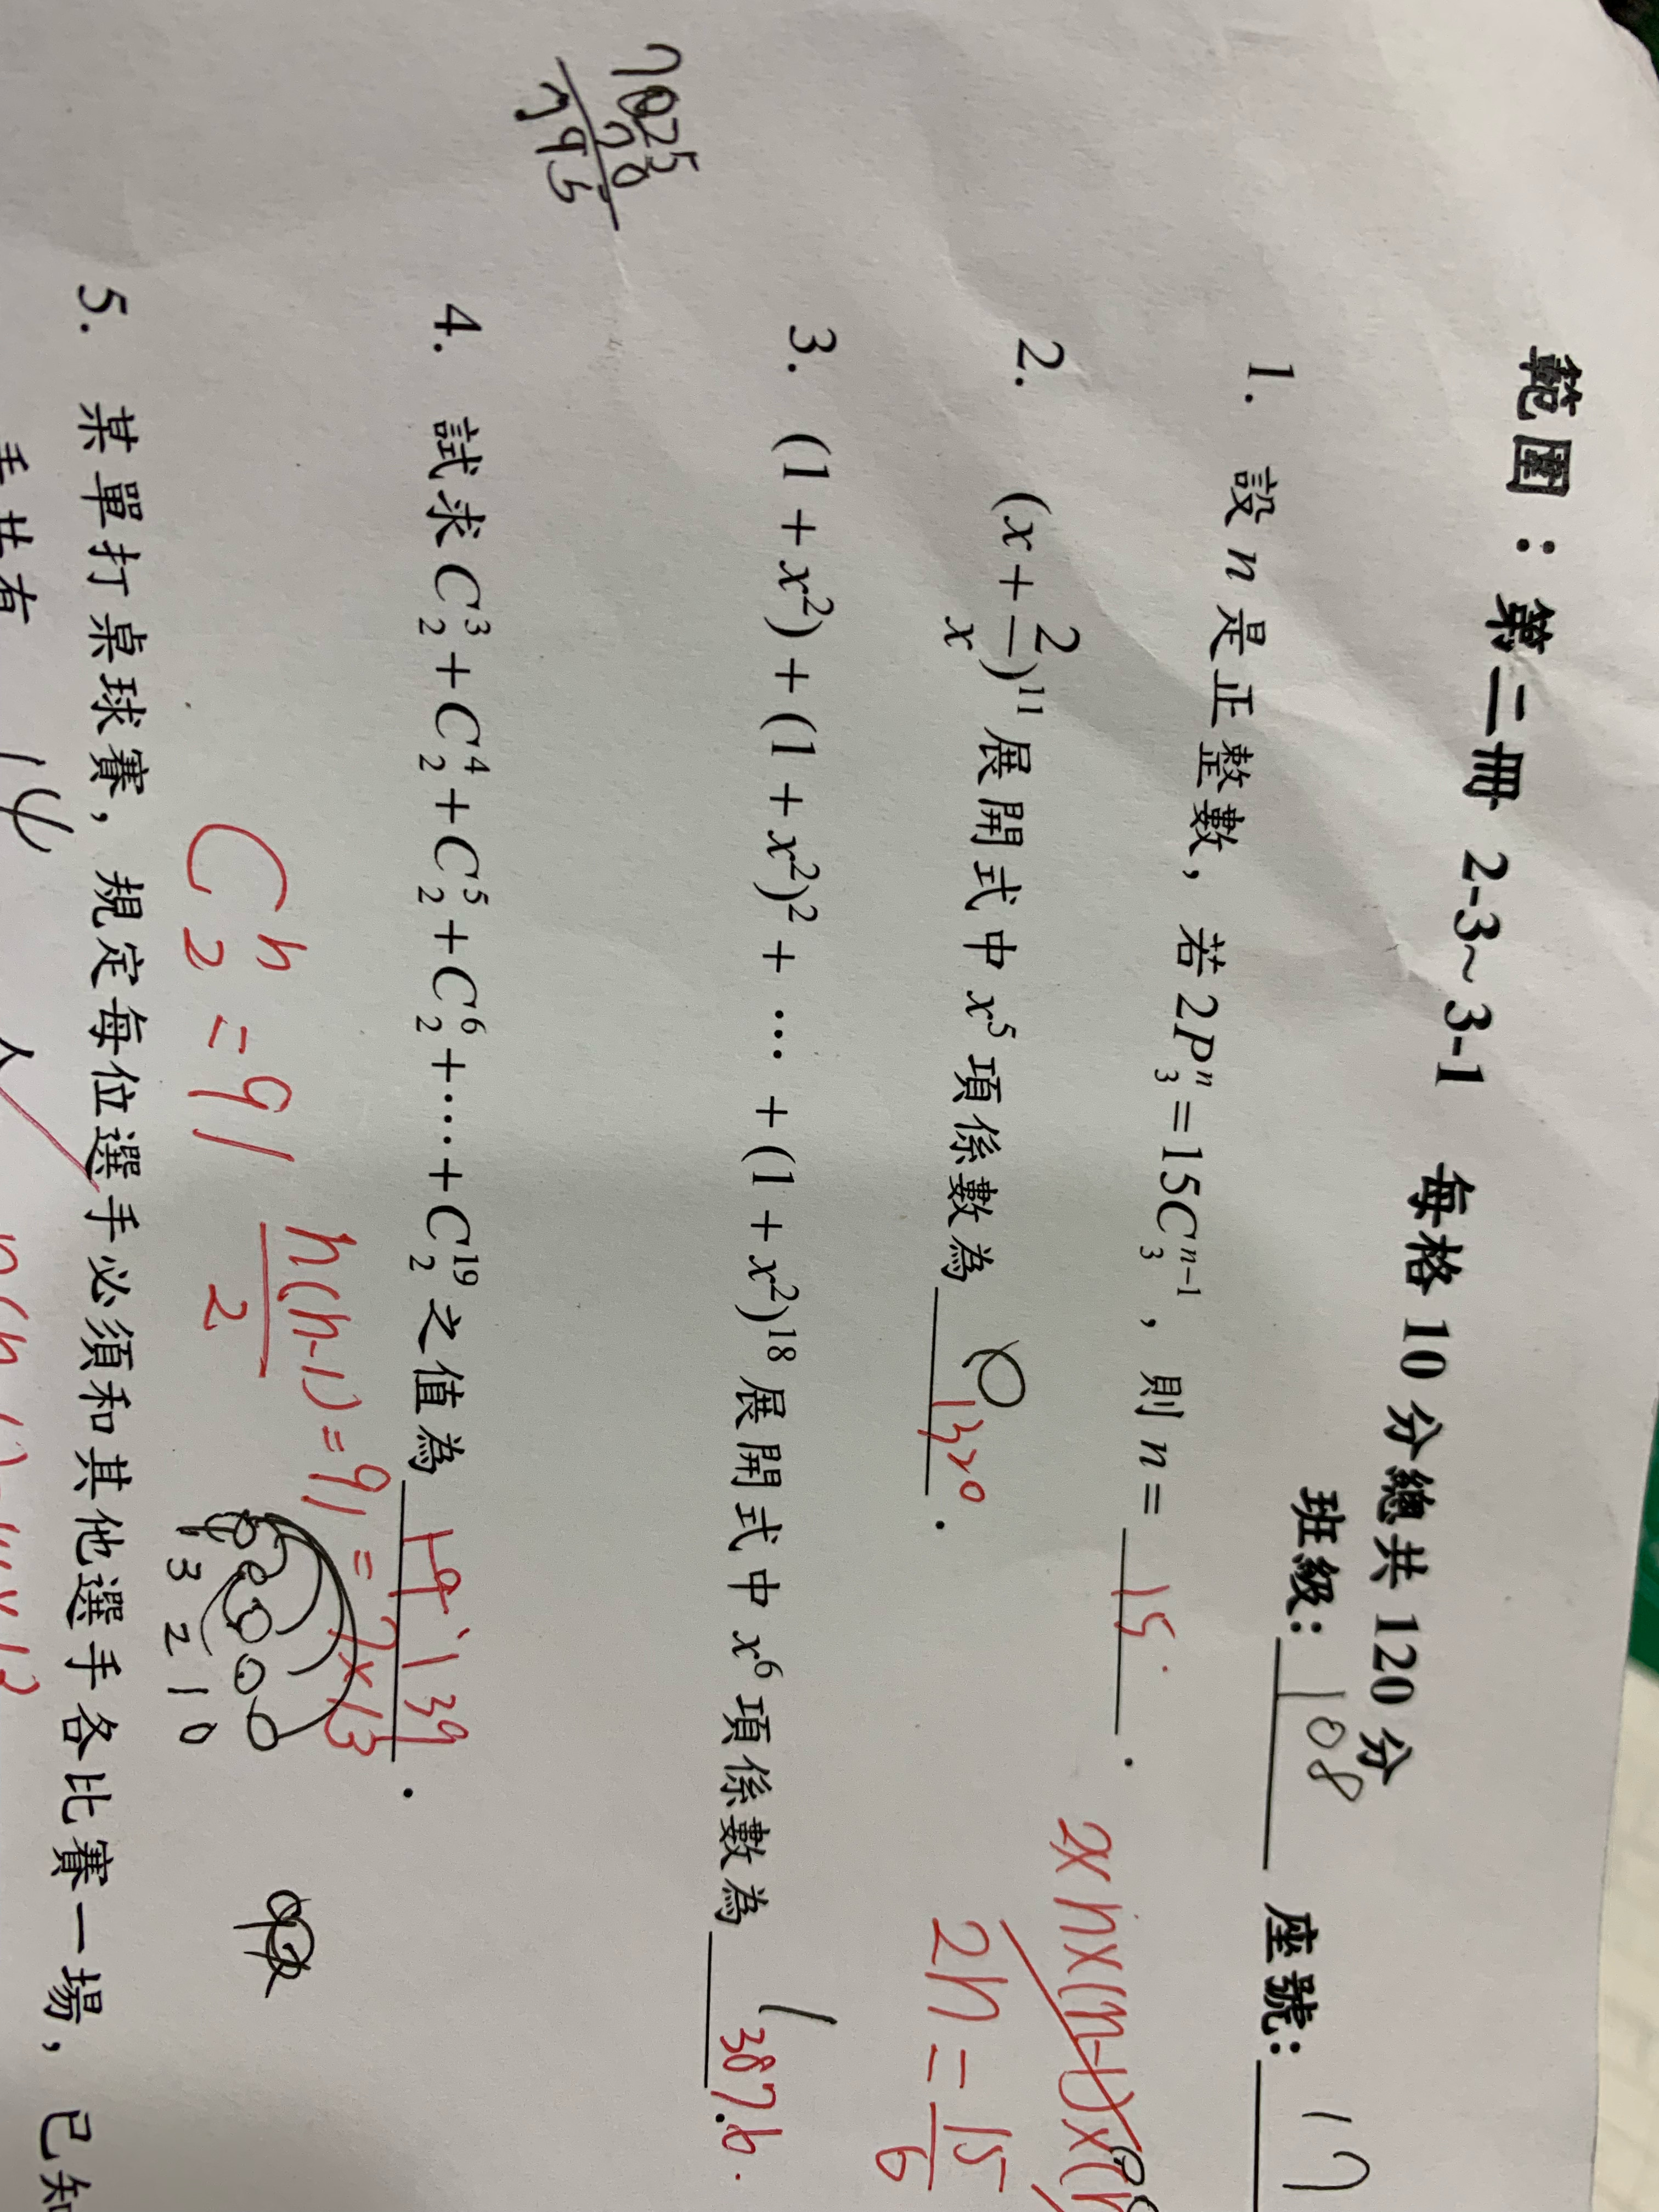 範圍：第二冊 2-3~3-1 每格 10 分總共 120 分
班級: 108 座號: 17
1. 設 n 是正整數，若 2P₃ⁿ=15C₃ⁿ⁻¹，則 n= 15 .
2×n×(n-1)×(n
2n = 15/6
2. (x+2/x)¹¹ 展開式中 x⁵ 項係數為 1320 .
3. (1+x²)+(1+x²)²+⋯+(1+x²)¹⁸ 展開式中 x⁶ 項係數為 3876 .
7025
30
995
4. 試求 C₂³+C₂⁴+C₂⁵+C₂⁶+⋯+C₂¹⁹ 之值為 1139 .
C₂ⁿ = 91
n(n-1)/2 = 91 = 7×13
3 2 1 0
5. 某單打桌球賽，規定每位選手必須和其他選手各比賽一場，已知
手共有 14 人